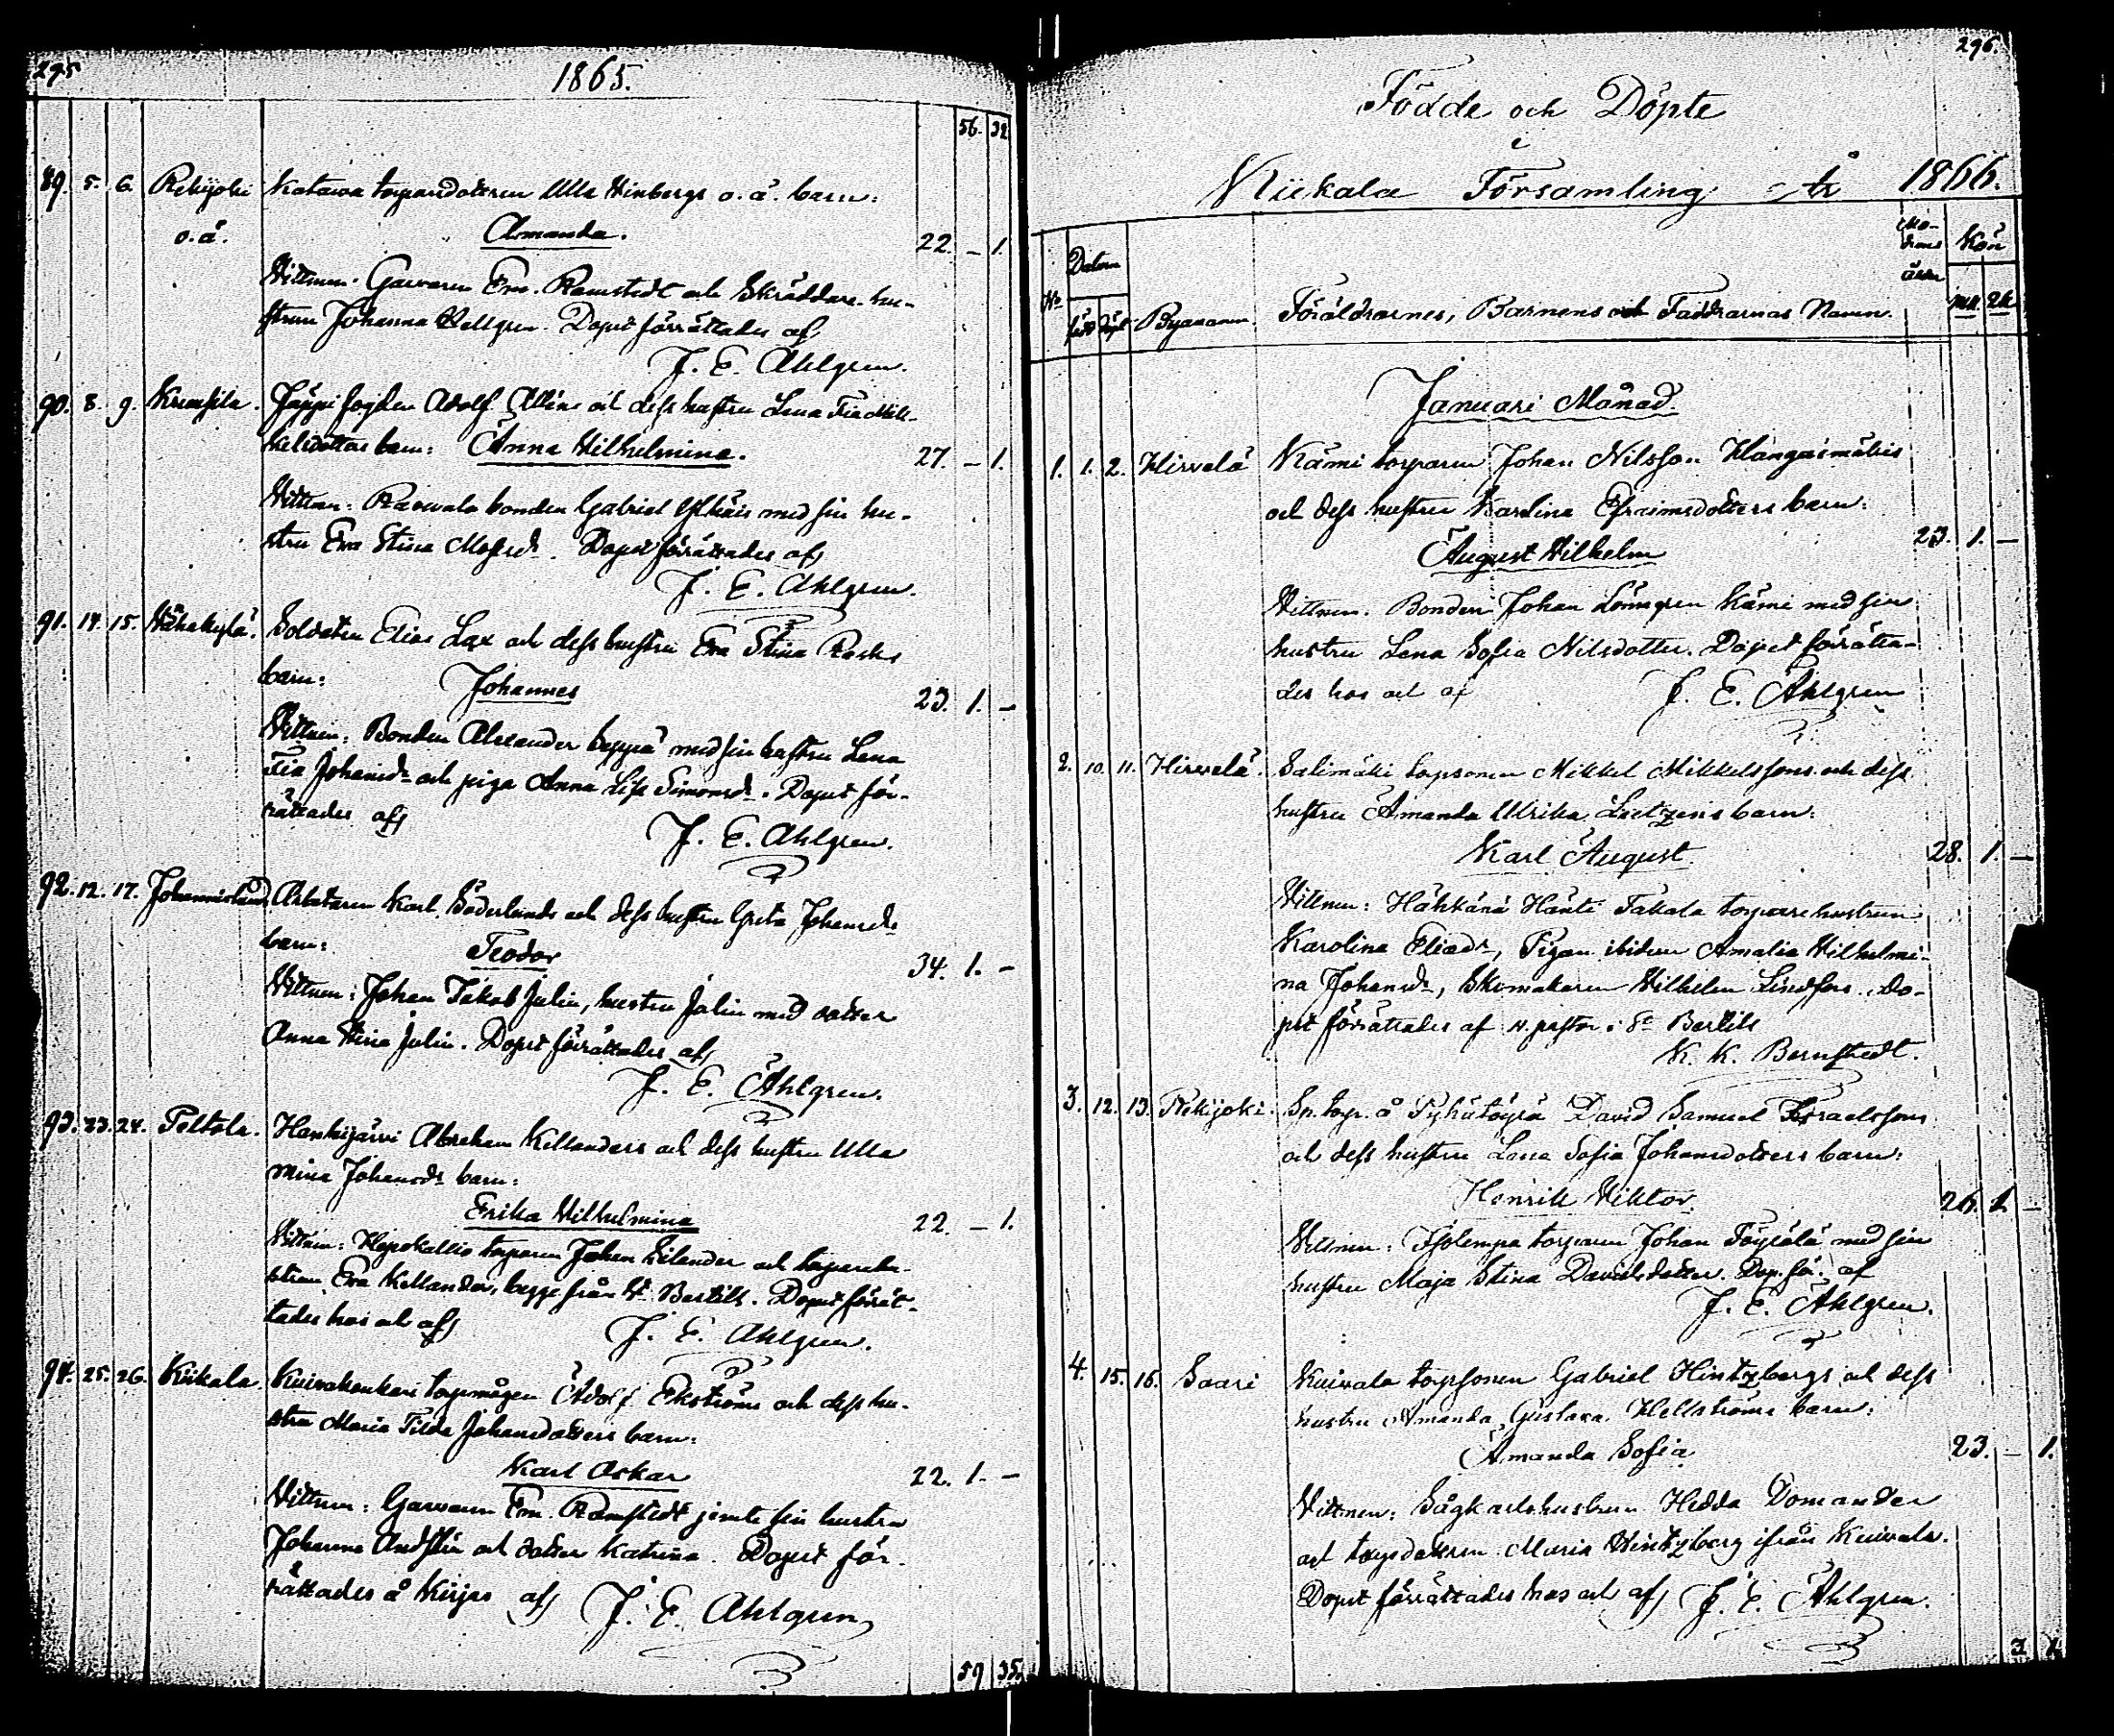 295
1865.
56. 32
89. 5. 6. Rekijoki Katawa torpardotteren Ulla Winbergs o.ä. barn:
o.ä. Amanda. 22. – 1.
Vittnen: Garvaren Em. Ramstedt och Skräddare-hu-
strun Johanna Hellgren. Dopet förrättades af
J. E. Ahlgren.
90. 8. 9. Jäppi fogden Adolf Alléns och dess hustru Lena Fia Mik-
kelsdotters barn: Anna Wilhelmina. 27. – 1.
Vittnen: Rauwala bonden Gabriel med sin hu-
stru Eva Stina Mosisdr. Dopet förrättades af
J. E. Ahlgren.
91. 14. 15. Wähäkylä. Soldaten Elias Lax och dess hustru Eva Stina Rasks
barn: Johannes 23. 1. –
Vittnen: Bonden Alexander med sin hustru Lena
Fia Johansdr och piga Anna Lisa Simonsdr. Dopet för-
rättades af
J. E. Ahlgren.
92. 12. 17. Johannislund Arbetaren Karl Söderlunds och dess hustru Greta Johansdr
barn: Teodor 34. 1. –
Vittnen: Johan Jakob Julin, hustru Julin med dotter
Anna Stina Julin. Dopet förrättades af
J. E. Ahlgren.
93. 23. 24. Peltola. Hankijärvi Abraham Killanders och dess hustru Ulla
Mina Johansdr barn:
Erika Wilhelmina 22. – 1.
Vittnen: Hepokallio torparen Johan Silander och torparehu-
strun Eva Killander, begge från St Bertils. Dopet förrät-
tades hos och af
J. E. Ahlgren.
94. 25. 26. Kiikala. torpmågen Adolf Ekströms och dess hu-
stru Maria Tilda Johansdotters barn:
Karl Oskar 22. 1. –
Vittnen: Garvaren Em. Ramstedt jemte sin hustru
Johanna och dotter Katrina. Dopet för-
rättades å af J. E. Ahlgren
59 35.
296.
Födde och Döpte
i
Kiikala Församling År 1866.
No Datum född döpt Byanamn. Föräldrarnes, Barnens och Faddrarnas Namn. Mo-
drens
ålder Kön
mk. qk.
Januari Månad.
1. 1. 2. Hirvelä Kämi torparen Johan Nilsson Hangasmäkis
och dess hustru Karolina Efraimsdotters barn:
August Wilhelm 23. 1. –
Vittnen: Bonden Johan Lönngren Kämi med sin
hustru Lena Sofia Nilsdotter. Dopet förrätta-
des hos och af J. E. Ahlgren
2. 10. 11. Hirvelä. Salimäki torpsonen Mikkel Mikkelssons och dess
hustru Amanda Ulrika barn:
Karl August. 28. 1. –
Vittnen: Hähkänä Hänti Takala torparehustrun
Karolina Eliasdr, Pigan ibidem Amalia Wilhelmi-
na Johansdr, Skomakaren Wilhelm Lindfors. Do-
pet förrättades af v. pastor i St Bertils
K. K. Bernstedt.
3. 12. 13. Rekijoki. Sp. torp. å David Samuel Israelssons
och dess hustru Lena Sofia Johansdotters barn:
Henrik Viktor. 26. 1. –
Vittnen: torparen Johan med sin
hustru Maja Stina Davidsdotter. Dop. för. af
J. E. Ahlgren.
4. 15. 16. Saari Kuivala torpsonen Gabriel Hintzbergs och dess
hustru Amanda Gustava Hellströms barn:
Amanda Sofia 23. – 1.
Vittnen: Sågkarlshustrun Hedda Domander
och torpdottren Maria Hintzberg ifrån Kuivala.
Dopet förrättades hos och af J. E. Ahlgren.
3 1